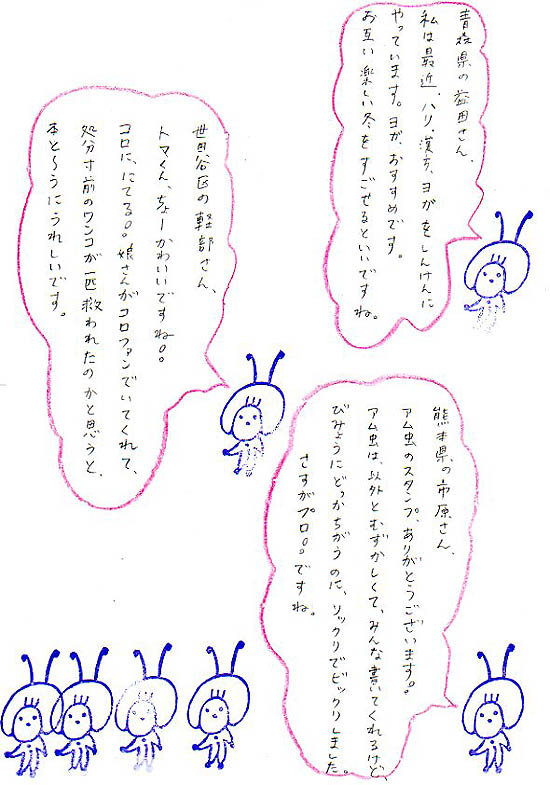 青森県の益田さん、
私は最近、ハリ、漢方、ヨガをしんけんに
やっています。ヨガ、おすすめです。
お互い楽しい冬をすごせるといいですね。
世田谷区の軽部さん、
トマくん、ちょーかわいいですね。
コロに、にてる。娘さんがコロファンでいてくれて、
処分寸前のワンコが一匹救われたのかと思うと、
本と〜うにうれしいです。
熊本県の市原さん、
アム虫のスタンプ、ありがとうございます。
アム虫は、以外とむずかしくて、みんな書いてくれるけど、
びみょうにどっかちがうのに、ソックリでビックリしました。
さすがプロ。ですね。